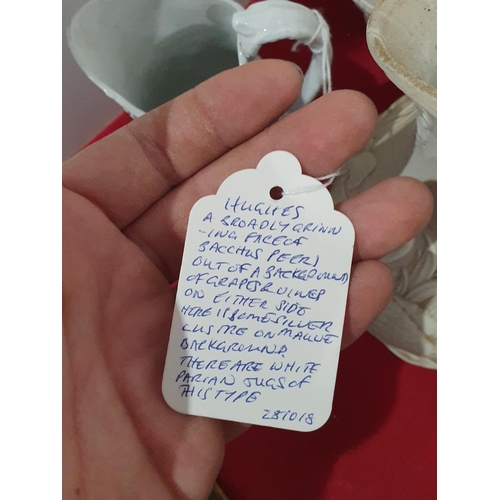 HUGHES
A BROADLY GRINN
-ING FACE OF
BACCHUS PEERS
OUT OF A BACKGROUND
OF GRAPES & VINES
ON EITHER SIDE
HERE IS SOME SILVER
LUSTRE ON MAUVE
BACKGROUND.
THERE ARE WHITE
PARIAN JUGS OF
THIS TYPE
281018